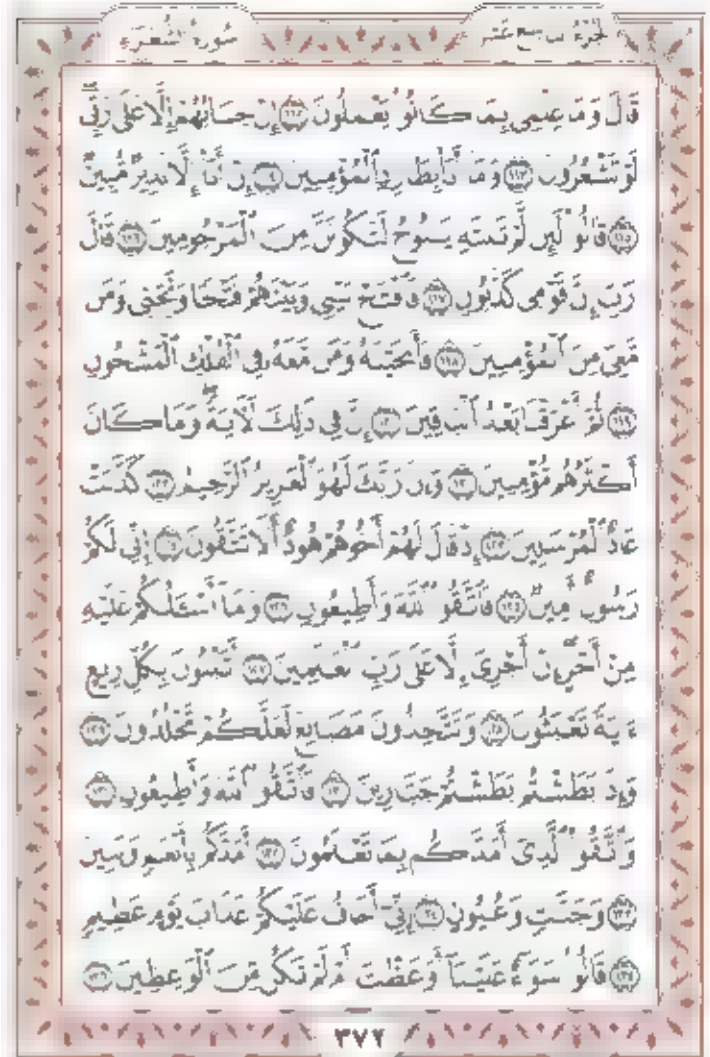 الجزء التاسع عشر سورة الشعراء
قَالَ وَمَا عِلْمِي بِمَا كَانُوا۟ يَعْمَلُونَ ١١٢ إِنْ حِسَابُهُمْ إِلَّا عَلَىٰ رَبِّي
لَوْ تَشْعُرُونَ ١١٣ وَمَآ أَنَا۠ بِطَارِدِ ٱلْمُؤْمِنِينَ ١١٤ إِنْ أَنَا۠ إِلَّا نَذِيرٌ مُّبِينٌ
١١٥ قَالُوا۟ لَئِن لَّمْ تَنتَهِ يَـٰنُوحُ لَتَكُونَنَّ مِنَ ٱلْمَرْجُومِينَ ١١٦ قَالَ
رَبِّ إِنَّ قَوْمِي كَذَّبُونِ ١١٧ فَٱفْتَحْ بَيْنِي وَبَيْنَهُمْ فَتْحًا وَنَجِّنِي وَمَن
مَّعِيَ مِنَ ٱلْمُؤْمِنِينَ ١١٨ فَأَنجَيْنَـٰهُ وَمَن مَّعَهُۥ فِي ٱلْفُلْكِ ٱلْمَشْحُونِ
١١٩ ثُمَّ أَغْرَقْنَا بَعْدُ ٱلْبَاقِينَ ١٢٠ إِنَّ فِي ذَٰلِكَ لَـَٔايَةً وَمَا كَانَ
أَكْثَرُهُم مُّؤْمِنِينَ ١٢١ وَإِنَّ رَبَّكَ لَهُوَ ٱلْعَزِيزُ ٱلرَّحِيمُ ١٢٢ كَذَّبَتْ
عَادٌ ٱلْمُرْسَلِينَ ١٢٣ إِذْ قَالَ لَهُمْ أَخُوهُمْ هُودٌ أَلَا تَتَّقُونَ ١٢٤ إِنِّي لَكُمْ
رَسُولٌ أَمِينٌ ١٢٥ فَٱتَّقُوا۟ ٱللَّهَ وَأَطِيعُونِ ١٢٦ وَمَآ أَسْـَٔلُكُمْ عَلَيْهِ
مِنْ أَجْرٍ إِنْ أَجْرِيَ إِلَّا عَلَىٰ رَبِّ ٱلْعَـٰلَمِينَ ١٢٧ أَتَبْنُونَ بِكُلِّ رِيعٍ
ءَايَةً تَعْبَثُونَ ١٢٨ وَتَتَّخِذُونَ مَصَانِعَ لَعَلَّكُمْ تَخْلُدُونَ ١٢٩
وَإِذَا بَطَشْتُم بَطَشْتُمْ جَبَّارِينَ ١٣٠ فَٱتَّقُوا۟ ٱللَّهَ وَأَطِيعُونِ ١٣١
وَٱتَّقُوا۟ ٱلَّذِيٓ أَمَدَّكُم بِمَا تَعْلَمُونَ ١٣٢ أَمَدَّكُم بِأَنْعَـٰمٍ وَبَنِينَ
١٣٣ وَجَنَّـٰتٍ وَعُيُونٍ ١٣٤ إِنِّيٓ أَخَافُ عَلَيْكُمْ عَذَابَ يَوْمٍ عَظِيمٍ
١٣٥ قَالُوا۟ سَوَآءٌ عَلَيْنَآ أَوَعَظْتَ أَمْ لَمْ تَكُن مِّنَ ٱلْوَٰعِظِينَ ١٣٦
٣٧٢